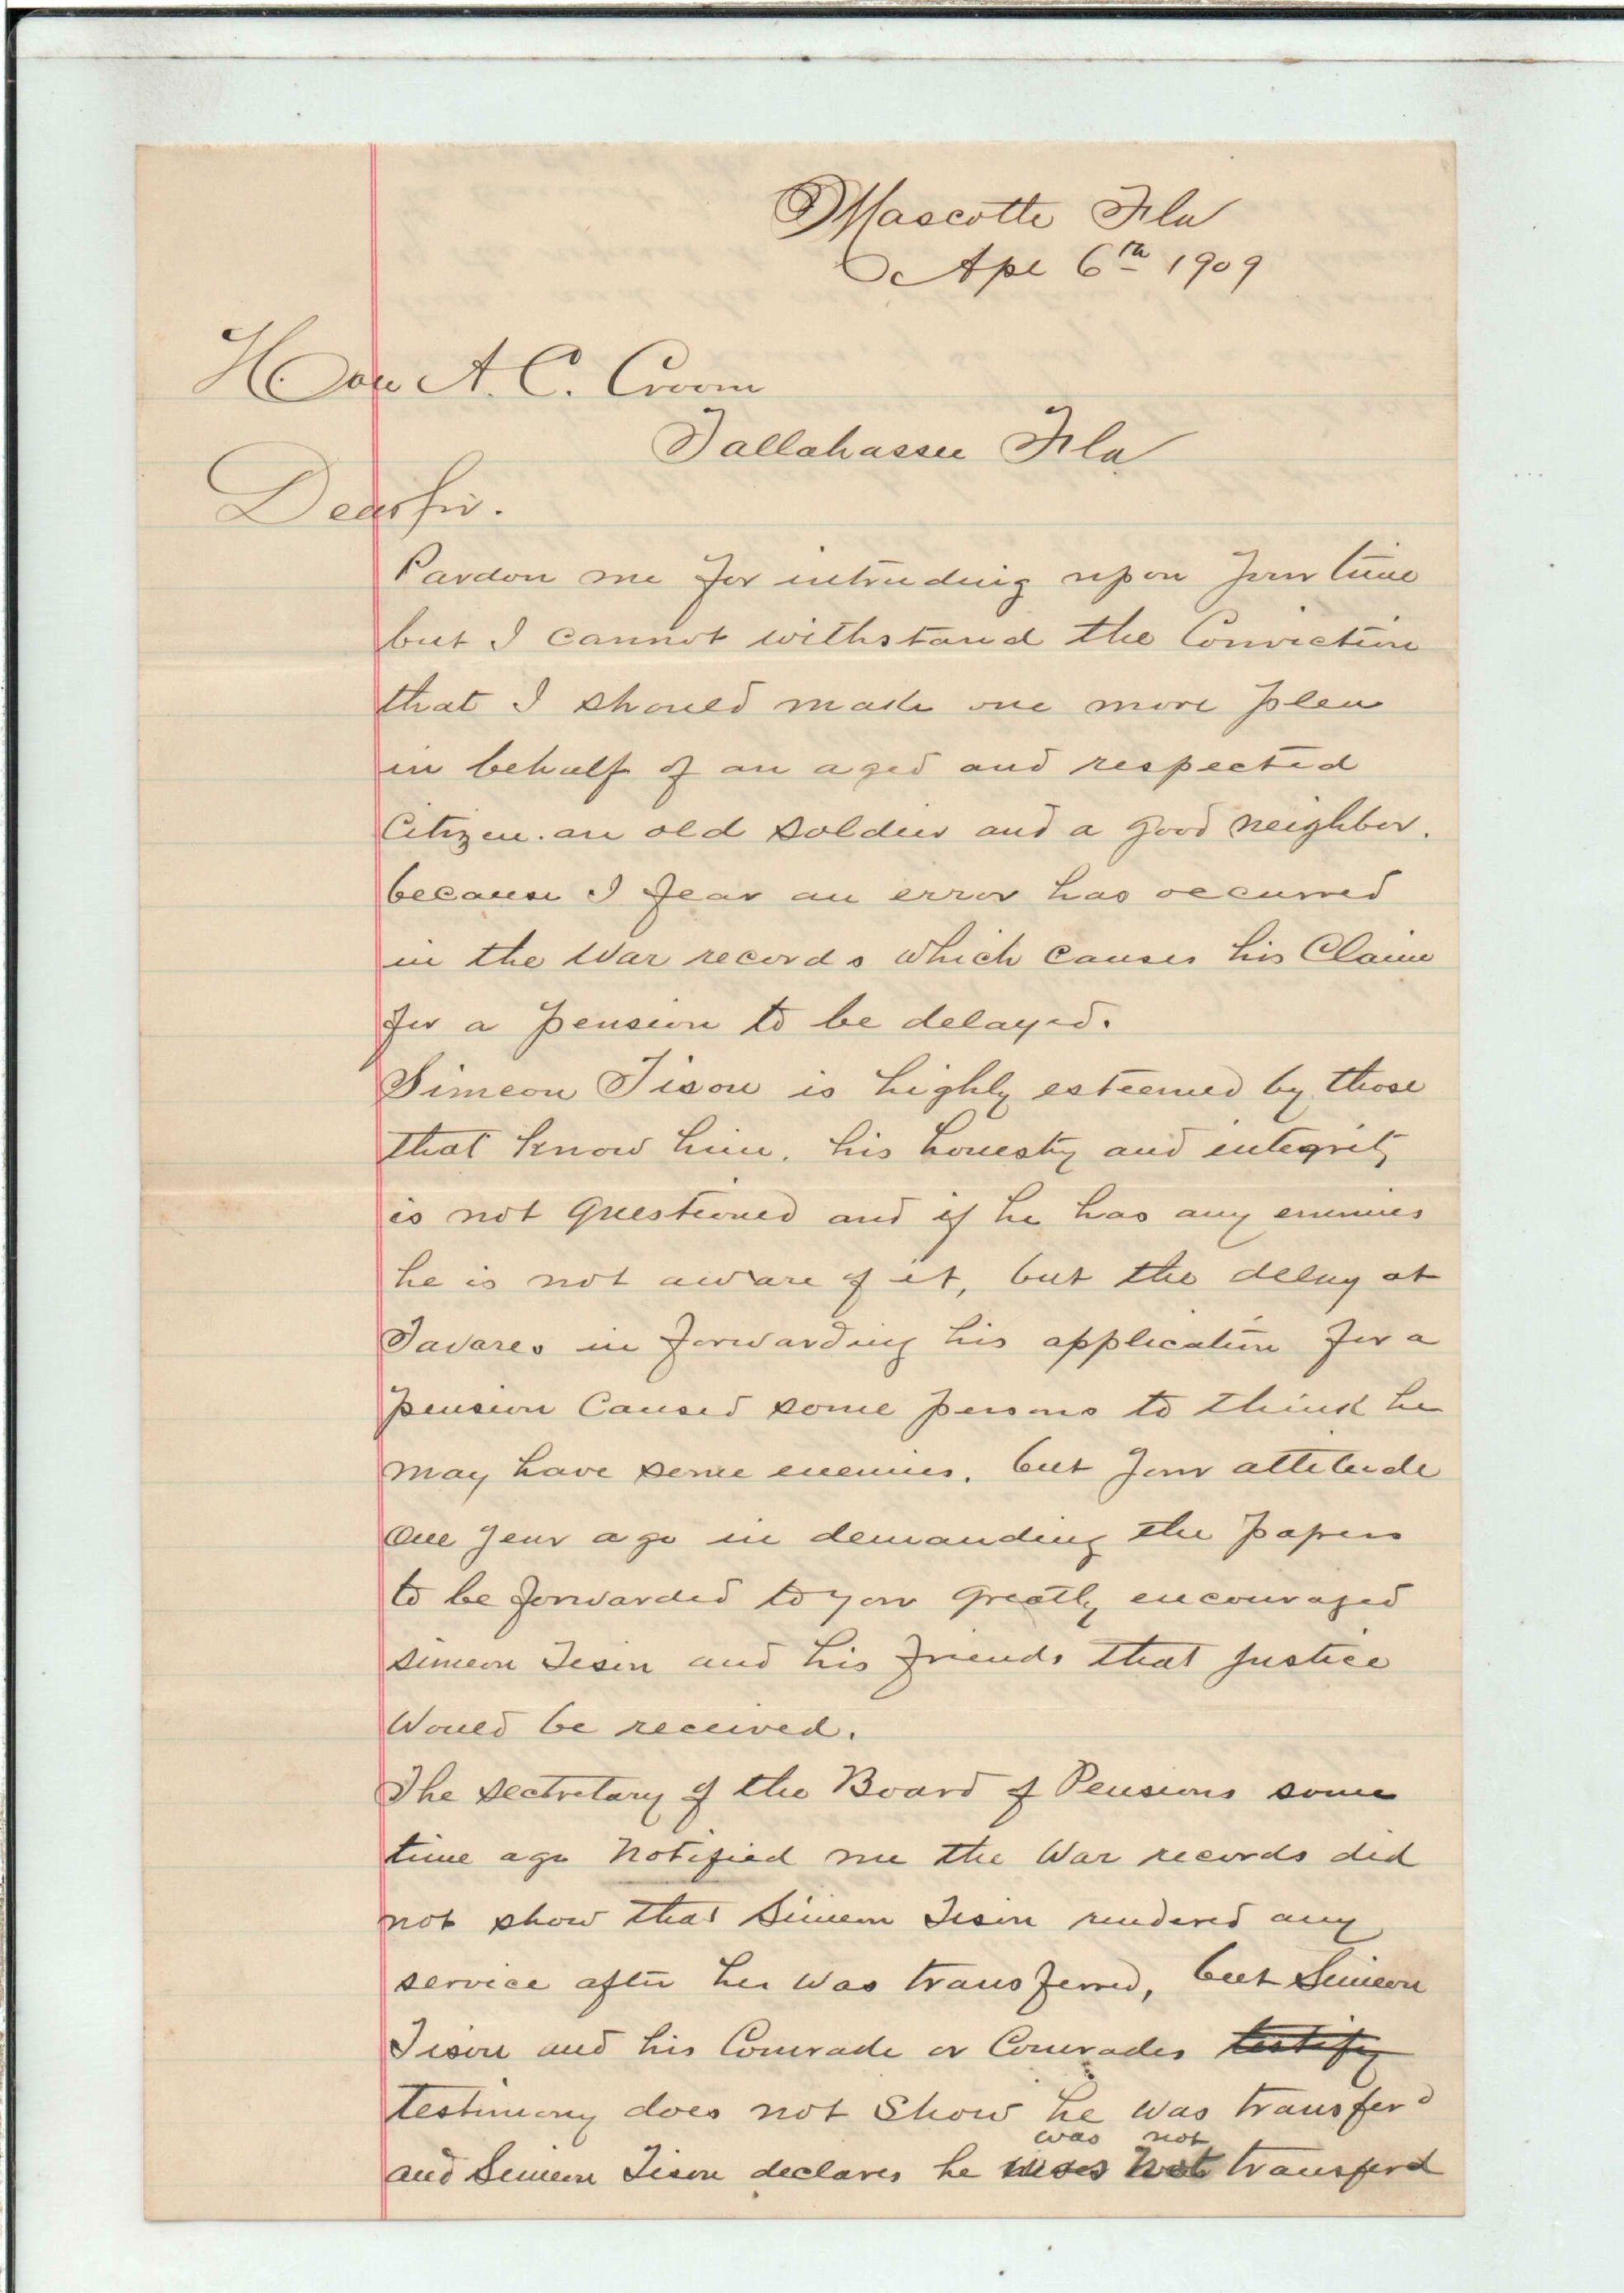 Mascotte Fla
Apl 6th 1909
Hon A. C. Croom
Tallahassee Fla
Dear Sir.
Pardon me for intruding upon your time
but I cannot withstand the Conviction
that I should make one more plea
in behalf of an aged and respected
Citizen. an old soldier and a good neighbor.
because I fear an error has occurred
in the War records which causes his Claim
for a pension to be delayed.
Simeon Tison is highly esteemed by those
that know him. his honesty and integrity
is not questioned and if he has any enemies
he is not aware of it, but the delay at
Tavares in forwarding his application for a
pension Caused some persons to think he
may have some enemies. but your attitude
one year ago in demanding the papers
to be forwarded to you greatly encouraged
Simeon Tison and his friends that justice
Would be received.
The Sectretary of the Board of Pensions some
time ago Notified me the War records did
not show that Simeon Tison rendered any
service after he was transferred, but Simeon
Tison and his Comrade or Comrades testify
testimony does not Show he was transferd
was not
and Simeon Tison declares he was not transferd